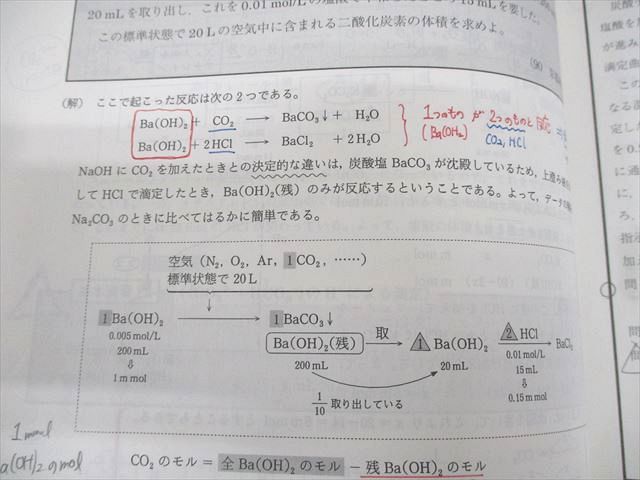 20 mL を取り出し,これを 0.01 mol/L の塩酸で
15 mL を要した。
この標準状態で 20 L の空気中に含まれる二酸化炭素の体積を求めよ。
(解) ここで起こった反応は次の2つである。
Ba(OH)₂ + CO₂ → BaCO₃↓ + H₂O
Ba(OH)₂ + 2HCl → BaCl₂ + 2H₂O
1つのもの が 2つのものと 反応
(Ba(OH)₂) CO₂, HCl
NaOH に CO₂ を加えたときとの決定的な違いは,炭酸塩 BaCO₃ が沈殿しているため,上澄み
して HCl で滴定したとき,Ba(OH)₂(残) のみが反応するということである。よって,データの
Na₂CO₃ のときに比べてはるかに簡単である。
空気 (N₂, O₂, Ar, 1 CO₂, ……)
標準状態で 20 L
1 Ba(OH)₂ → 1 BaCO₃↓
Ba(OH)₂(残) 取 → 1 Ba(OH)₂ 2 HCl → BaCl₂
0.005 mol/L
200 mL
⇩
1 m mol
200 mL
20 mL
0.01 mol/L
15 mL
⇩
0.15 m mol
1/10 取り出している
1 mmol
a(OH)₂ のmol
CO₂ のモル = 全 Ba(OH)₂ のモル − 残 Ba(OH)₂ のモル